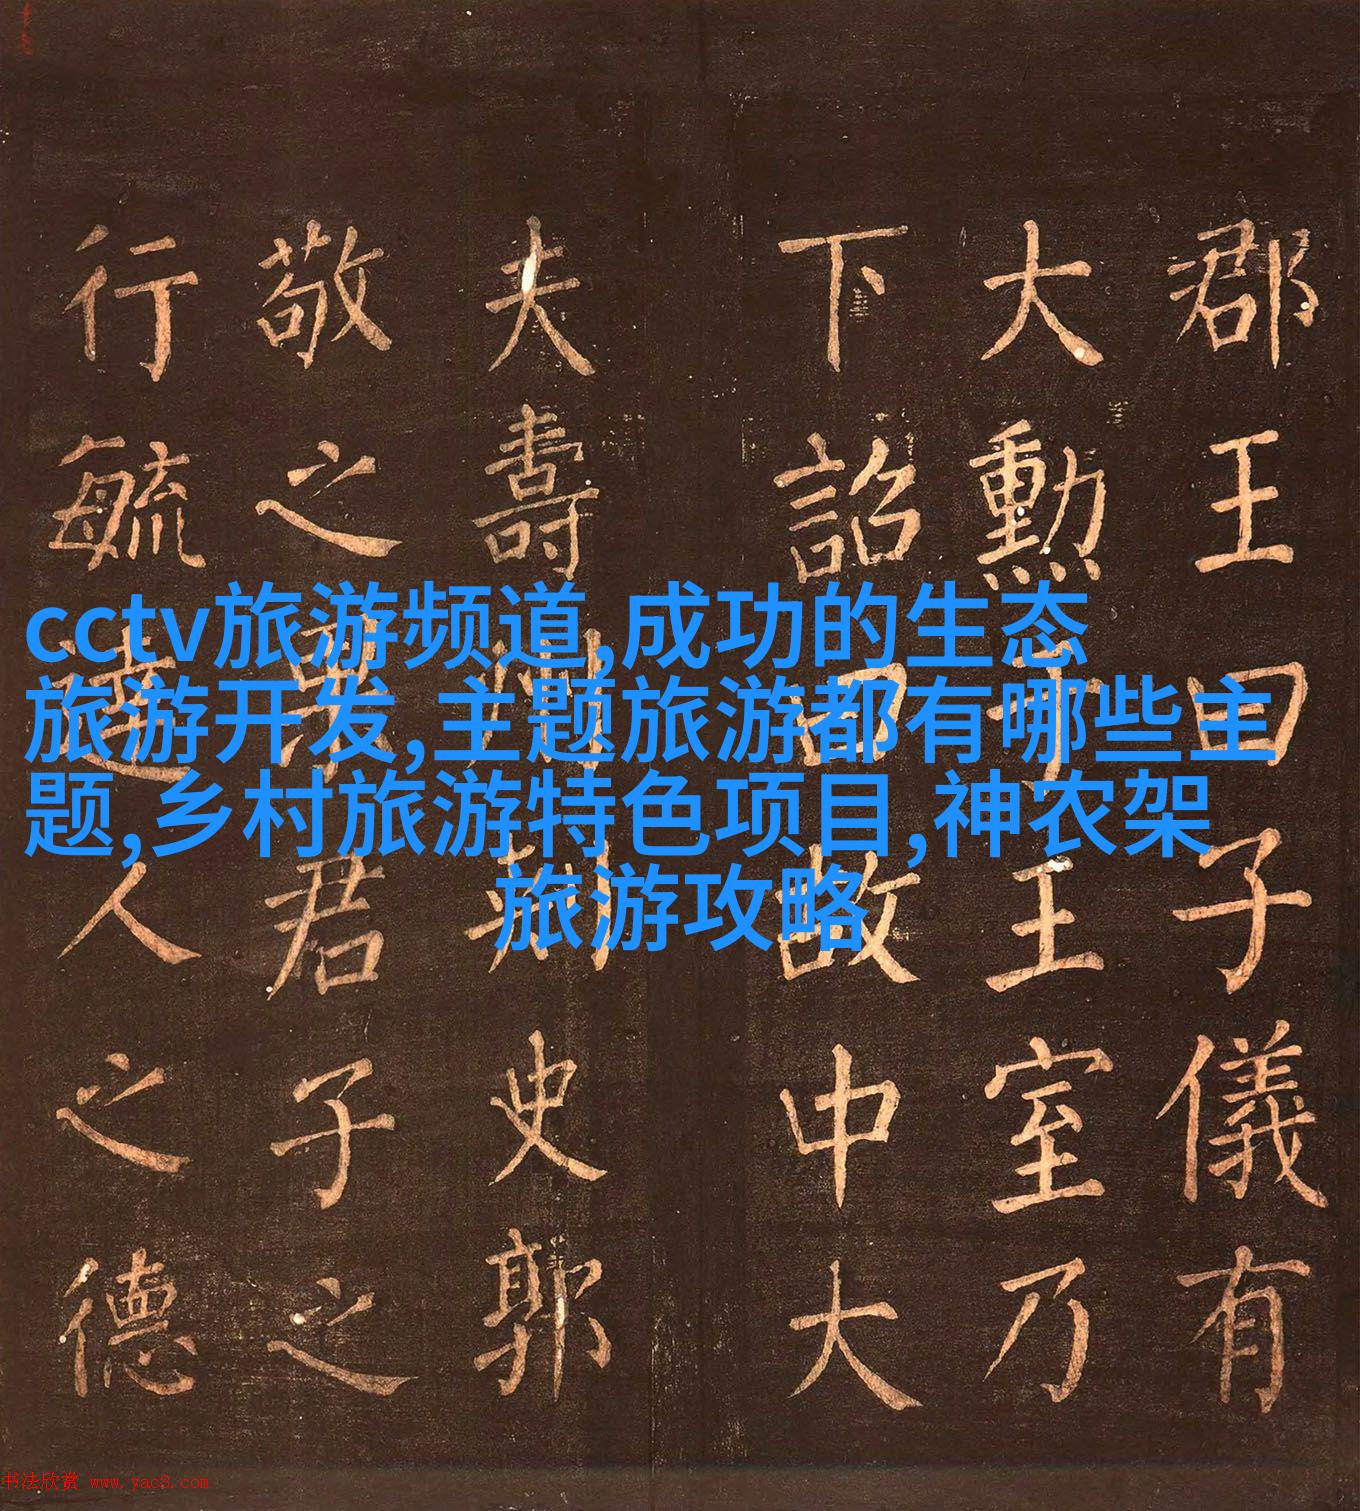 郡王曰子儀有
大勳于王室乃
下詔曰故中大
夫壽州刺史郭
敬之君子之
行毓達人之德
cctv旅游频道,成功的生态
旅游开发,主题旅游都有哪些主
题,乡村旅游特色项目,神农架
旅游攻略
书法欣赏 www.yac8.com